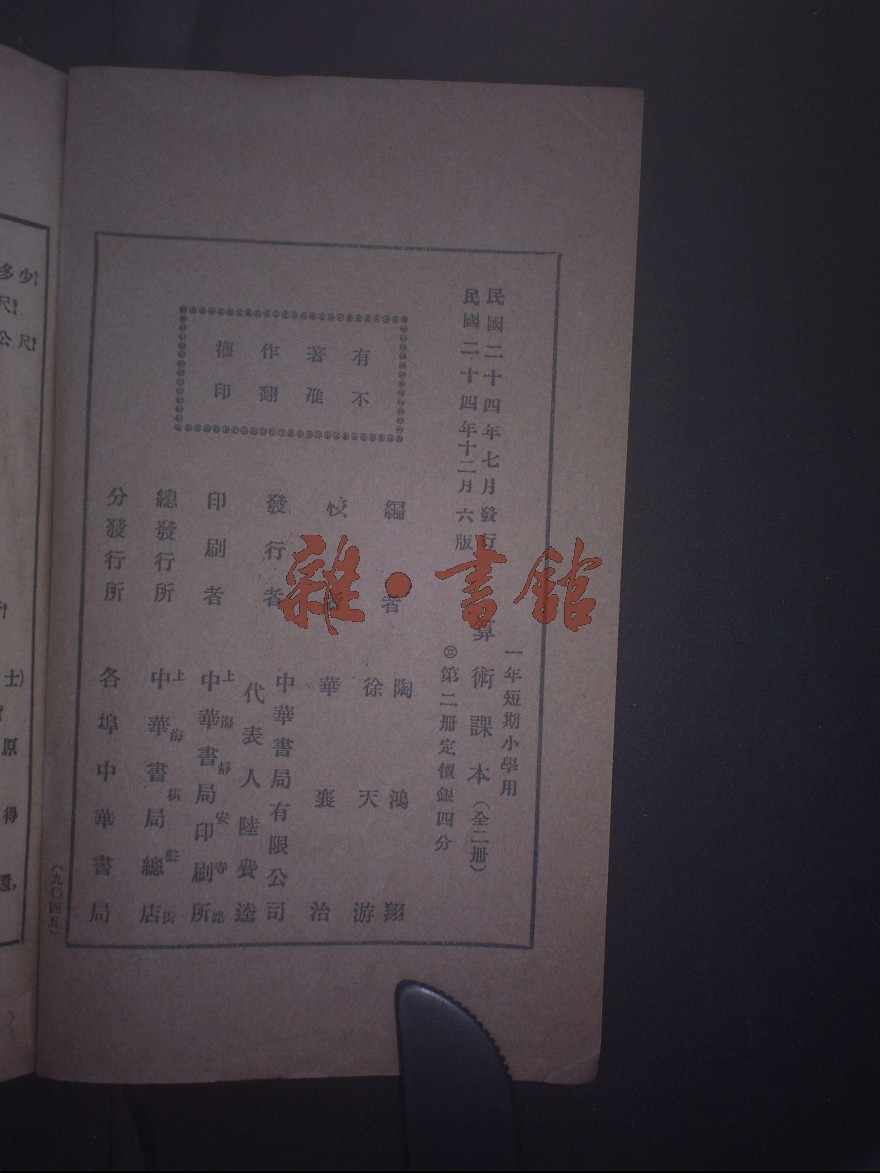 民國二十四年七月發行
民國二十四年十二月六版
一年短期小學用
算術課本（全二冊）
第二冊定價銀四分
有著作權
不准翻印
編者
陶鴻翔
徐天游
校者
華襄治
發行者
中華書局有限公司
代表人陸費逵
印刷者
上海靜安寺路
中華書局印刷所
總發行所
上海棋盤街
中華書局總店
分發行所
各埠中華書局
（九〇四五）
雜·書館
多少？
尺？
公尺？
士）
原
得